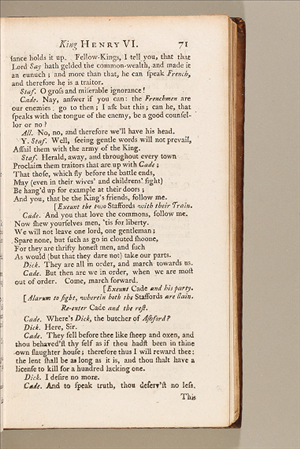 King HENRY VI. 71
ſance holds it up. Fellow-Kings, I tell you, that that
Lord Say hath gelded the common-wealth, and made it
an eunuch; and more than that, he can ſpeak French,
and therefore he is a traitor.
Staf. O groſs and miſerable ignorance!
Cade. Nay, anſwer if you can: the Frenchmen are
our enemies: go to then; I aſk but this; can he, that
ſpeaks with the tongue of the enemy, be a good counſel-
lor or no?
All. No, no, and therefore we'll have his head.
Y. Staf. Well, ſeeing gentle words will not prevail,
Aſſail them with the army of the King.
Staf. Herald, away, and throughout every town
Proclaim them traitors that are up with Cade;
That thoſe, which fly before the battle ends,
May (even in their wives' and childrens' ſight)
Be hang'd up for example at their doors;
And you, that be the King's friends, follow me.
[Exeunt the two Staffords with their Train.
Cade. And you that love the commons, follow me.
Now ſhew yourſelves men, 'tis for liberty.
We will not leave one lord, one gentleman;
Spare none, but ſuch as go in clouted ſhoone,
For they are thrifty honeſt men, and ſuch
As would (but that they dare not) take our parts.
Dick. They are all in order, and march towards us.
Cade. But then are we in order, when we are moſt
out of order. Come, march forward.
[Exeunt Cade and his party.
[Alarum to fight, wherein both the Staffords are ſlain.
Re-enter Cade and the reſt.
Cade. Where's Dick, the butcher of Aſhford?
Dick. Here, Sir.
Cade. They fell before thee like ſheep and oxen, and
thou behaved'ſt thy ſelf as if thou hadſt been in thine
own ſlaughter houſe; therefore thus I will reward thee:
the lent ſhall be as long as it is, and thou ſhalt have a
license to kill for a hundred lacking one.
Dick. I deſire no more.
Cade. And to ſpeak truth, thou deſerv'ſt no leſs.
This